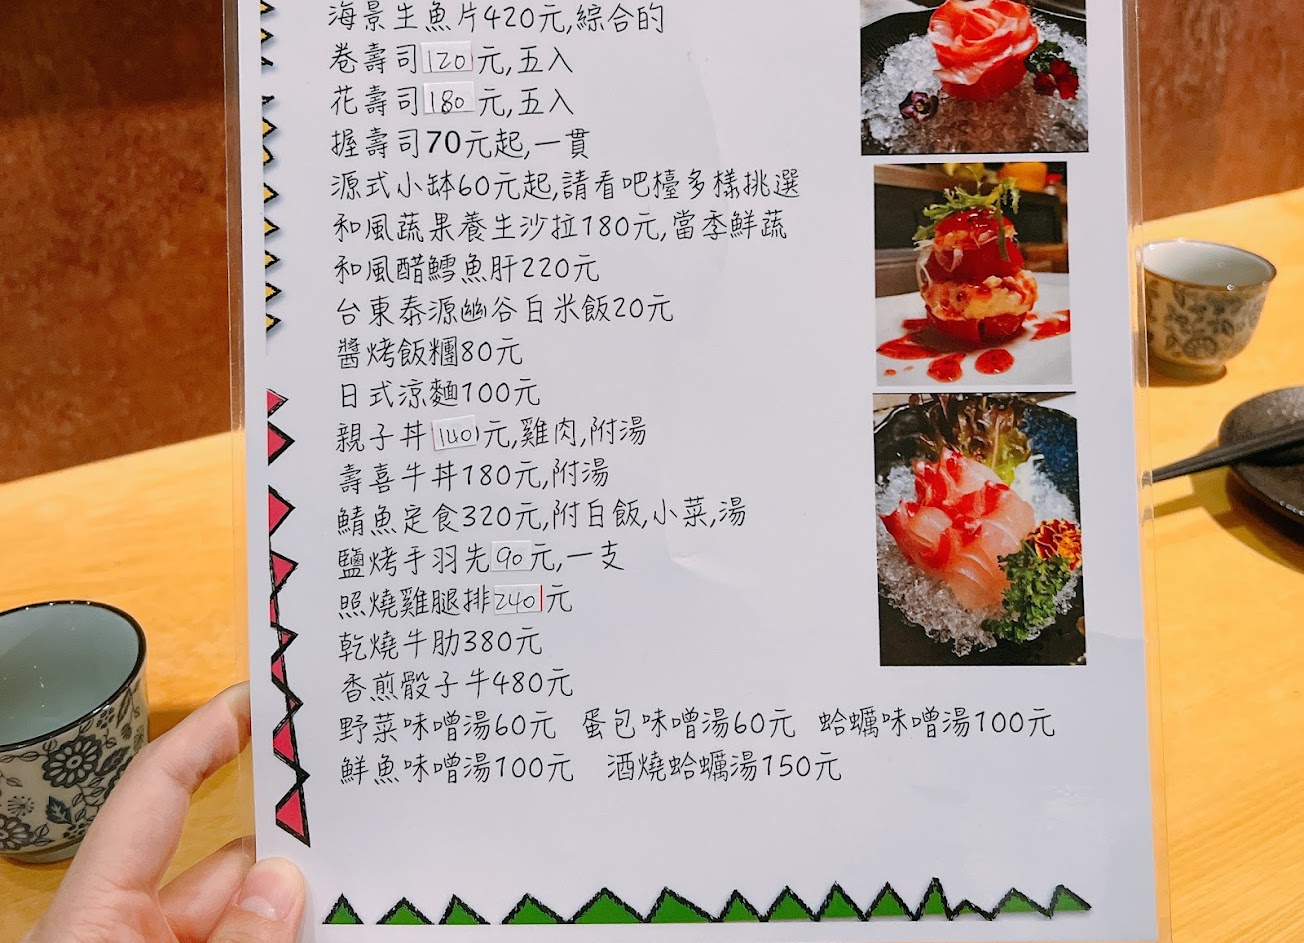 海景生魚片420元,綜合的
卷壽司120元,五入
花壽司180元,五入
握壽司70元起,一貫
源式小缽60元起,請看吧檯多樣挑選
和風蔬果養生沙拉180元,當季鮮蔬
和風醋鱈魚肝220元
台東泰源幽谷白米飯20元
醬烤飯糰80元
日式涼麵100元
親子丼140元,雞肉,附湯
壽喜牛丼180元,附湯
鯖魚定食320元,附白飯,小菜,湯
鹽烤手羽先90元,一支
照燒雞腿排240元
乾燒牛肋380元
香煎骰子牛480元
野菜味噌湯60元 蛋包味噌湯60元 蛤蠣味噌湯100元
鮮魚味噌湯100元 酒燒蛤蠣湯150元